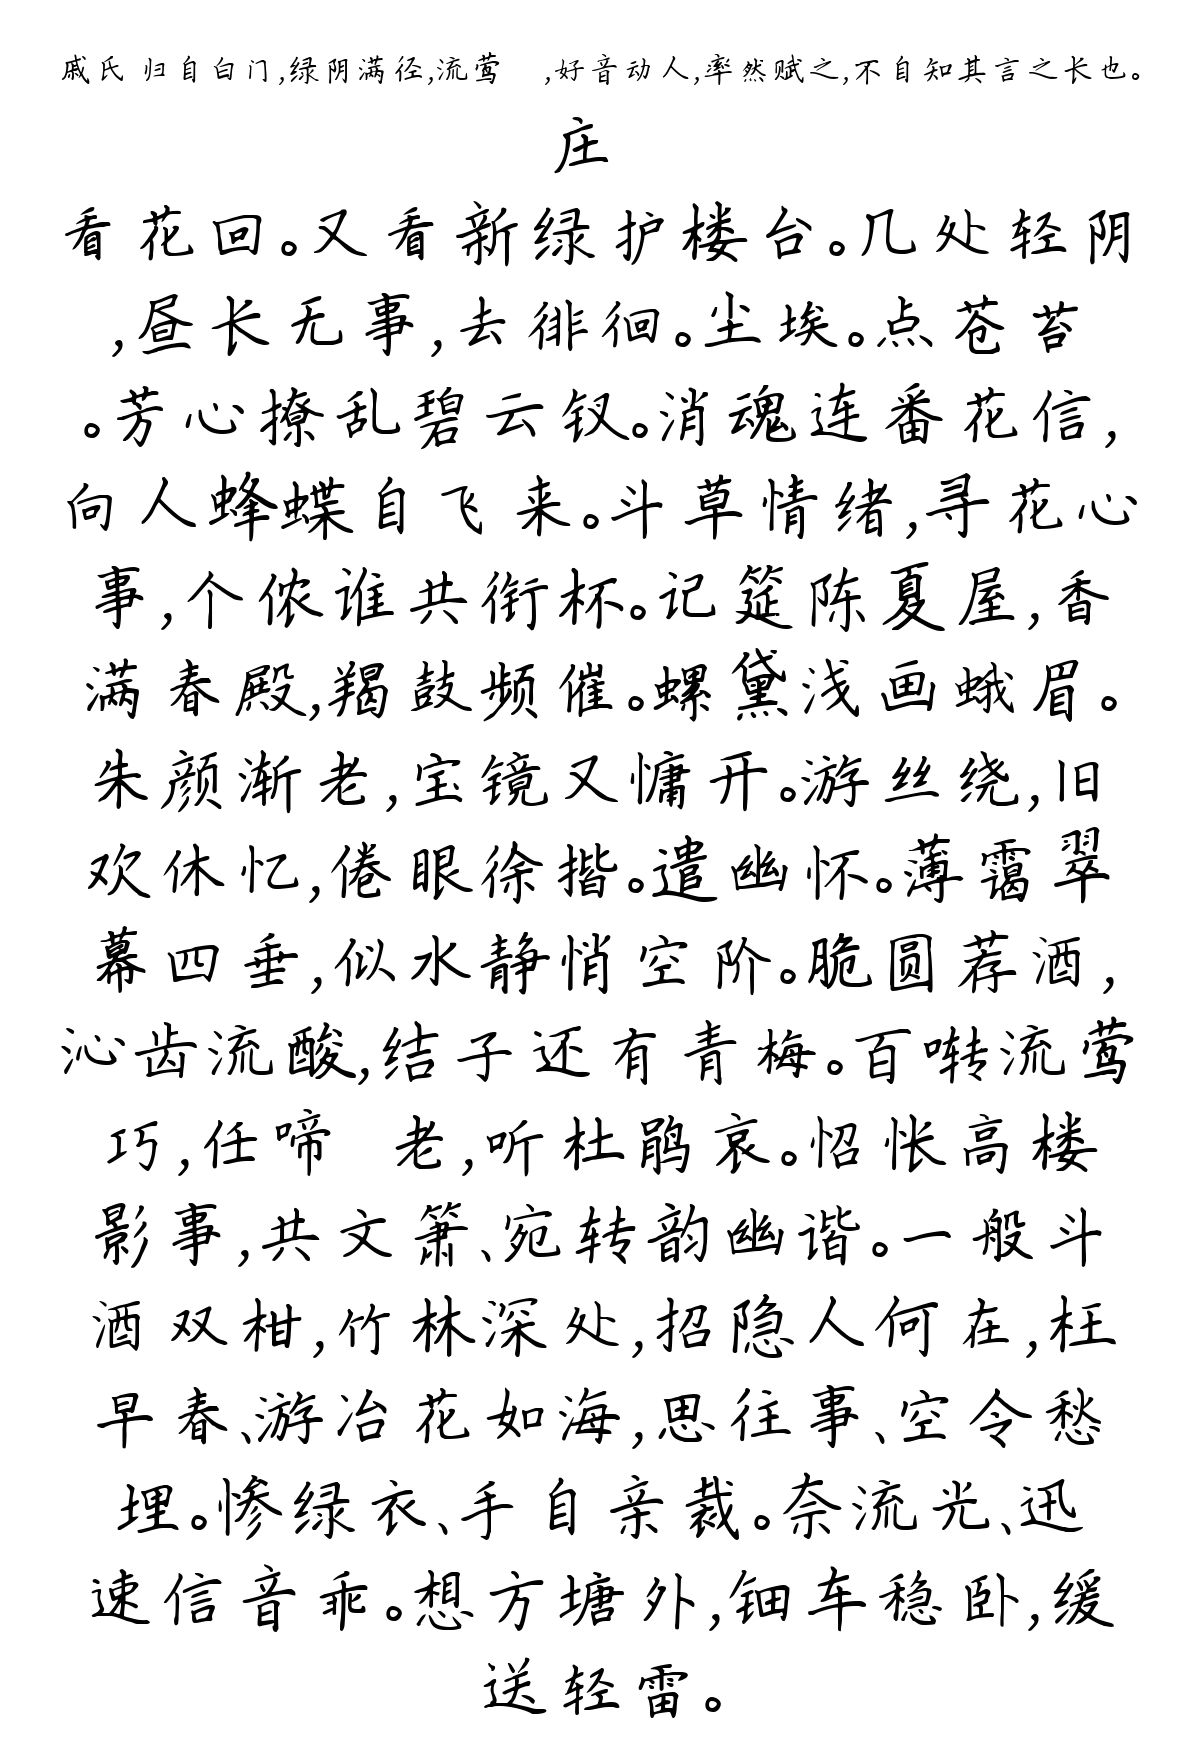 戚氏 归自白门,绿阴满径,流莺 ,好音动人,率然赋之,不自知其言之长也。
庄
看花回。又看新绿护楼台。几处轻阴
,昼长无事,去徘徊。尘埃。点苍苔
。芳心撩乱碧云钗。消魂连番花信,
向人蜂蝶自飞来。斗草情绪,寻花心
事,个侬谁共衔杯。记筵陈夏屋,香
满春殿,羯鼓频催。螺黛浅画蛾眉。
朱颜渐老,宝镜又慵开。游丝绕,旧
欢休忆,倦眼徐揩。遣幽怀。薄霭翠
幕四垂,似水静悄空阶。脆圆荐酒,
沁齿流酸,结子还有青梅。百啭流莺
巧,任啼 老,听杜鹃哀。怊怅高楼
影事,共文箫、宛转韵幽谐。一般斗
酒双柑,竹林深处,招隐人何在,枉
早春、游冶花如海,思往事、空令愁
埋。惨绿衣、手自亲裁。奈流光、迅
速信音乖。想方塘外,钿车稳卧,缓
送轻雷。